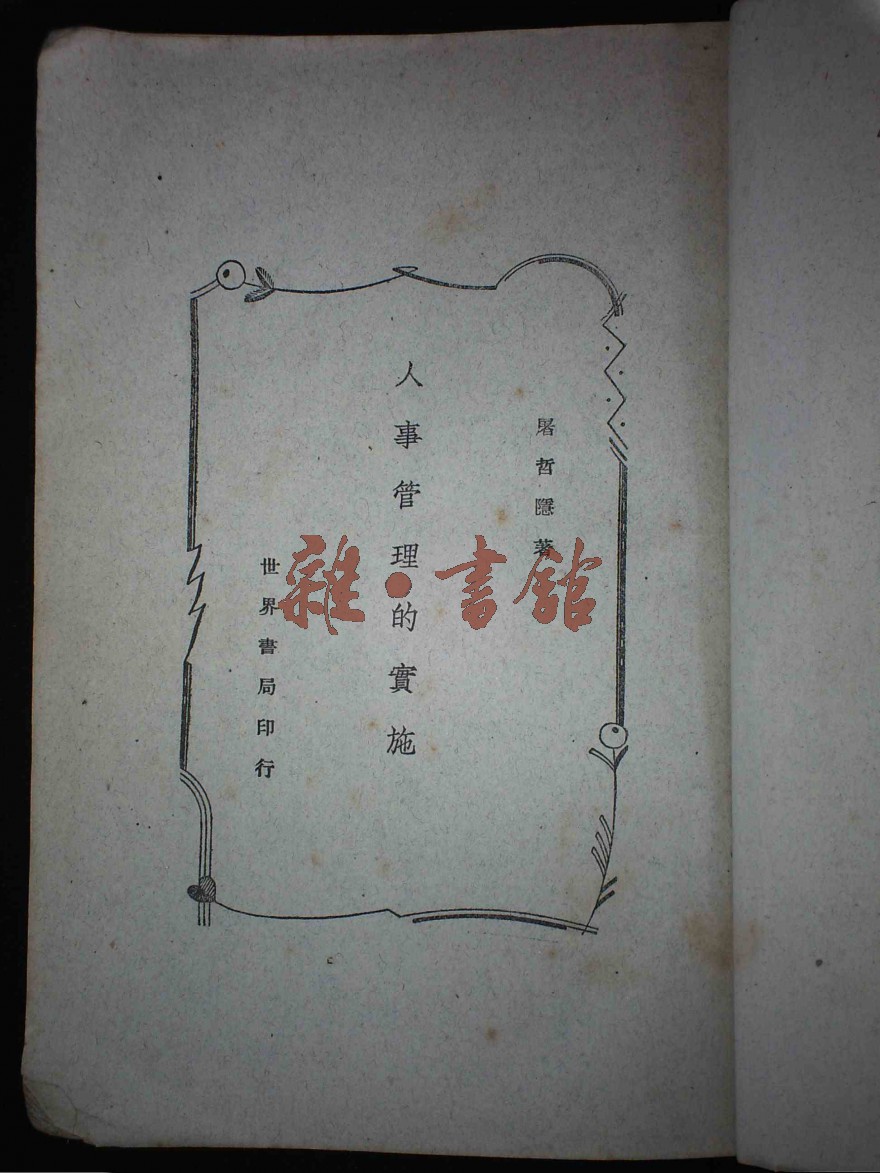 屠哲隱著
人事管理的實施
世界書局印行
雜·書館